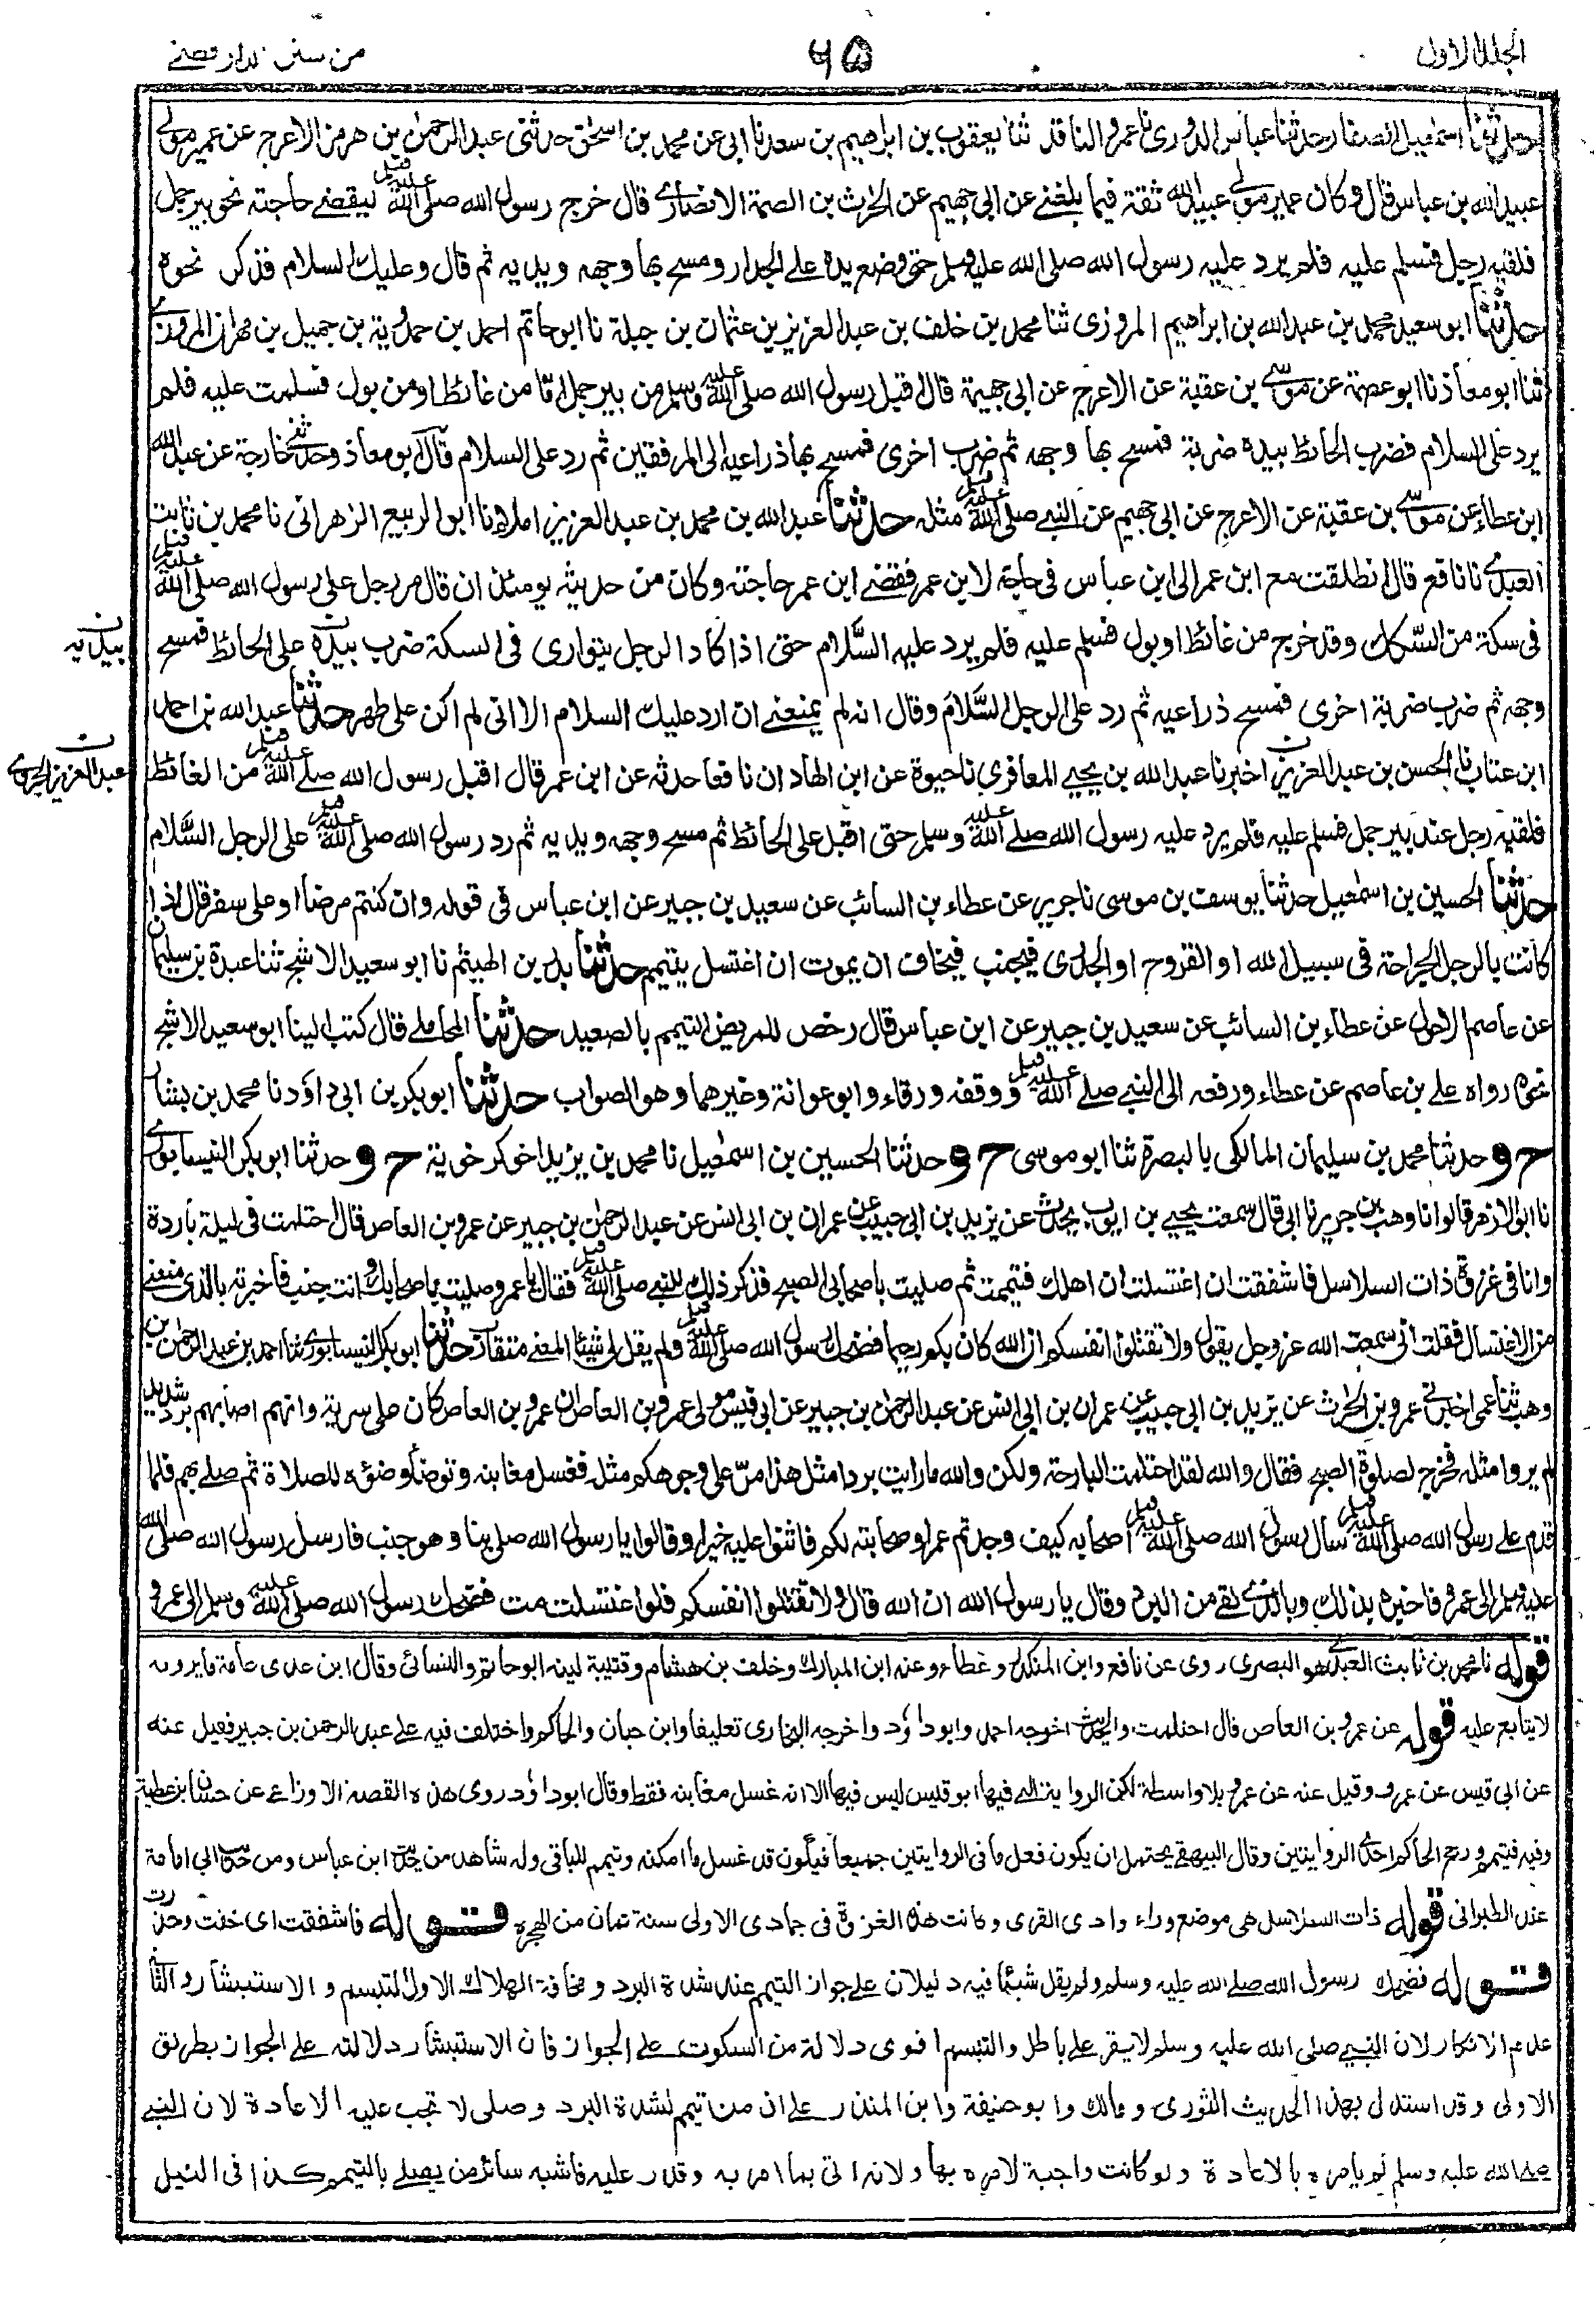 الجلد الاول
٦٥
من سنن الدارقطني
حدثنا اسمعيل الصفار حدثنا عباس الدوري نا عمرو الناقد ثنا يعقوب بن ابراهيم بن سعد نا ابي عن محمد بن اسحق حدثني عبد الرحمن بن هرمز الاعرج عن عمير مولى
عبيد الله بن عباس قال وكان عمير مولى عبيد الله ثقة فيما بلغني عن ابي جهيم عن الحرث بن الصمة الانصاري قال خرج رسول الله صلى الله عليه وسلم ليقضي حاجته نحو بير جمل
فلقيه رجل فسلم عليه فلم يرد عليه رسول الله صلى الله عليه وسلم حتى وضع يده على الجدار ومسح بها وجهه ويديه ثم قال وعليك السلام فذكر نحوه
حدثنا ابو سعيد محمد بن عبد الله بن ابراهيم المروزي ثنا محمد بن خلف بن عبد العزيز بن عثمان بن جبلة نا ابو حاتم احمد بن حمدوية بن جميل بن مهران المروزي
ثنا ابو معاذ نا ابو عصمة عن موسى بن عقبة عن الاعرج عن ابي جهيمة قال اقبل رسول الله صلى الله عليه وسلم من بير جمل اما من غائط او من بول فسلمت عليه فلم
يرد علي السلام فضرب الحائط بيده ضربة فمسح بها وجهه ثم ضرب اخرى فمسح بها ذراعيه الى المرفقين ثم رد علي السلام قال ابو معاذ وحدثني خارجة عن عبد الله
ابن عطاء عن موسى بن عقبة عن الاعرج عن ابي جهيم عن النبي صلى الله عليه وسلم مثله حدثنا عبد الله بن محمد بن عبد العزيز املاء نا ابو الربيع الزهراني نا محمد بن ثابت
العبدي نا نافع قال انطلقت مع ابن عمر الى ابن عباس في حاجة لابن عمر فقضى ابن عمر حاجته وكان من حديثه يومئذ ان قال مر رجل على رسول الله صلى الله عليه وسلم
في سكة من السكك وقد خرج من غائط او بول فسلم عليه فلم يرد عليه السلام حتى اذا كاد الرجل يتوارى في السكة ضرب بيده ن على الحائط فمسح
ن بيديه
وجهه ثم ضرب ضربة اخرى فمسح ذراعيه ثم رد على الرجل السلام وقال انه لم يمنعني ان ارد عليك السلام الا اني لم اكن على طهر حدثنا عبد الله بن احمد
ابن عتاب نا الحسن بن عبد العزيز ن اخبرنا عبد الله بن يحيى المعافري نا حيوة عن ابن الهاد ان نافعا حدثه عن ابن عمر قال اقبل رسول الله صلى الله عليه وسلم من الغائط
ن عبد العزيز الجروي
فلقيه رجل عند بير جمل فسلم عليه فلم يرد عليه رسول الله صلى الله عليه وسلم حتى اقبل على الحائط ثم مسح وجهه ويديه ثم رد رسول الله صلى الله عليه وسلم على الرجل السلام
حدثنا الحسين بن اسمعيل حدثنا يوسف بن موسى نا جرير عن عطاء بن السائب عن سعيد بن جبير عن ابن عباس في قوله وان كنتم مرضا او على سفر قال اذا
كانت بالرجل الجراحة في سبيل الله او القروح او الجدري فيجنب فيخاف ان يموت ان اغتسل يتيمم حدثنا بدر بن الهيثم نا ابو سعيد الاشج ثنا عبدة بن سليمان
عن عاصم الاحول عن عطاء بن السائب عن سعيد بن جبير عن ابن عباس قال رخص للمريض التيمم بالصعيد حدثنا المحاملي قال كتب الينا ابو سعيد الاشج
نحوه رواه علي بن عاصم عن عطاء ورفعه الى النبي صلى الله عليه وسلم ووقفه ورقاء وابو عوانة وغيرهما وهو الصواب حدثنا ابو بكر بن ابي داؤد نا محمد بن بشار
ح و حدثنا محمد بن سليمان المالكي بالبصرة ثنا ابو موسى ح و حدثنا الحسين بن اسمعيل نا محمد بن يزيد اخو كرخوية ح و حدثنا ابو بكر النيسابوري
نا ابو الازهر قالوا نا وهب بن جرير نا ابي قال سمعت يحيى بن ايوب يحدث عن يزيد بن ابي حبيب عن عمران بن ابي انس عن عبد الرحمن بن جبير عن عمرو بن العاص قال احتلمت في ليلة باردة
وانا في غزوة ذات السلاسل فاشفقت ان اغتسلت ان اهلك فتيممت ثم صليت باصحابي الصبح فذكر ذلك للنبي صلى الله عليه وسلم فقال يا عمرو صليت باصحابك وانت جنب فاخبرته بالذي منعني
من الاغتسال فقلت اني سمعت الله عز وجل يقول ولا تقتلوا انفسكم ان الله كان بكم رحيما فضحك رسول الله صلى الله عليه وسلم ولم يقل لي شيئا المعنى متقارب حدثنا ابو بكر النيسابوري ثنا احمد بن عبد الرحمن بن
وهب ثنا عمي اخبرني عمرو بن الحرث عن يزيد بن ابي حبيب عن عمران بن ابي انس عن عبد الرحمن بن جبير عن ابي قيس مولى عمرو بن العاص ان عمرو بن العاص كان على سرية وانهم اصابهم برد شديد
لم يروا مثله فخرج لصلوة الصبح فقال والله لقد احتلمت البارحة ولكن والله ما رايت بردا مثل هذا مر على وجوهكم مثله فغسل مغابنه وتوضأ وضوءه للصلاة ثم صلى بهم فلما
قدم على رسول الله صلى الله عليه وسلم سأل رسول الله صلى الله عليه وسلم اصحابه كيف وجدتم عمرا وصحابته لكم فاثنوا عليه خيرا وقالوا يا رسول الله صلى بنا وهو جنب فارسل رسول الله صلى الله
عليه وسلم الى عمرو فاخبره بذلك وبالذي لقي من البرد وقال يا رسول الله ان الله قال ولا تقتلوا انفسكم فلو اغتسلت مت فضحك رسول الله صلى الله عليه وسلم الى عمرو
قوله نا محمد بن ثابت العبدي هو البصري روى عن نافع وابن المنكدر وعطاء وعنه ابن المبارك وخلف بن هشام وقتيبة لينه ابو حاتم والنسائي وقال ابن عدي عامة ما يرويه
لا يتابع عليه قوله عن عمرو بن العاص قال احتلمت والحديث اخرجه احمد وابو داؤد واخرجه البخاري تعليقا وابن حبان والحاكم واختلف فيه على عبد الرحمن بن جبير فقيل عنه
عن ابي قيس عن عمرو وقيل عنه عن عمرو بلا واسطة لكن الرواية التي فيها ابو قيس ليس فيها الا انه غسل مغابنه فقط وقال ابو داؤد روى هذه القصة الاوزاعي عن حسان بن عطية
وفيه فتيمم ورجح الحاكم احدى الروايتين وقال البيهقي يحتمل ان يكون فعل ما في الروايتين جميعا فيكون قد غسل ما امكنه وتيمم للباقي وله شاهد من حديث ابن عباس ومن حديث ابي امامة
عند الطبراني قوله ذات السلاسل هي موضع وراء وادي القرى وكانت هذه الغزوة في جمادى الاولى سنة ثمان من الهجرة قوله فاشفقت اي خفت وحذرت
قوله فضحك رسول الله صلى الله عليه وسلم ولم يقل شيئا فيه دليلان على جواز التيمم عند شدة البرد ومخافة الهلاك الاول التبسم والاستبشار والثاني
عدم الانكار لان النبي صلى الله عليه وسلم لا يقر على باطل والتبسم اقوى دلالة من السكوت على الجواز فان الاستبشار دلالته على الجواز بطريق
الاولى وقد استدل بهذا الحديث الثوري ومالك وابو حنيفة وابن المنذر على ان من تيمم لشدة البرد وصلى لا تجب عليه الاعادة لان النبي
صلى الله عليه وسلم لم يامره بالاعادة ولو كانت واجبة لامره بها ولانه اتى بما امر به وقدر عليه فاشبه سائر من يصلي بالتيمم كذا في النيل